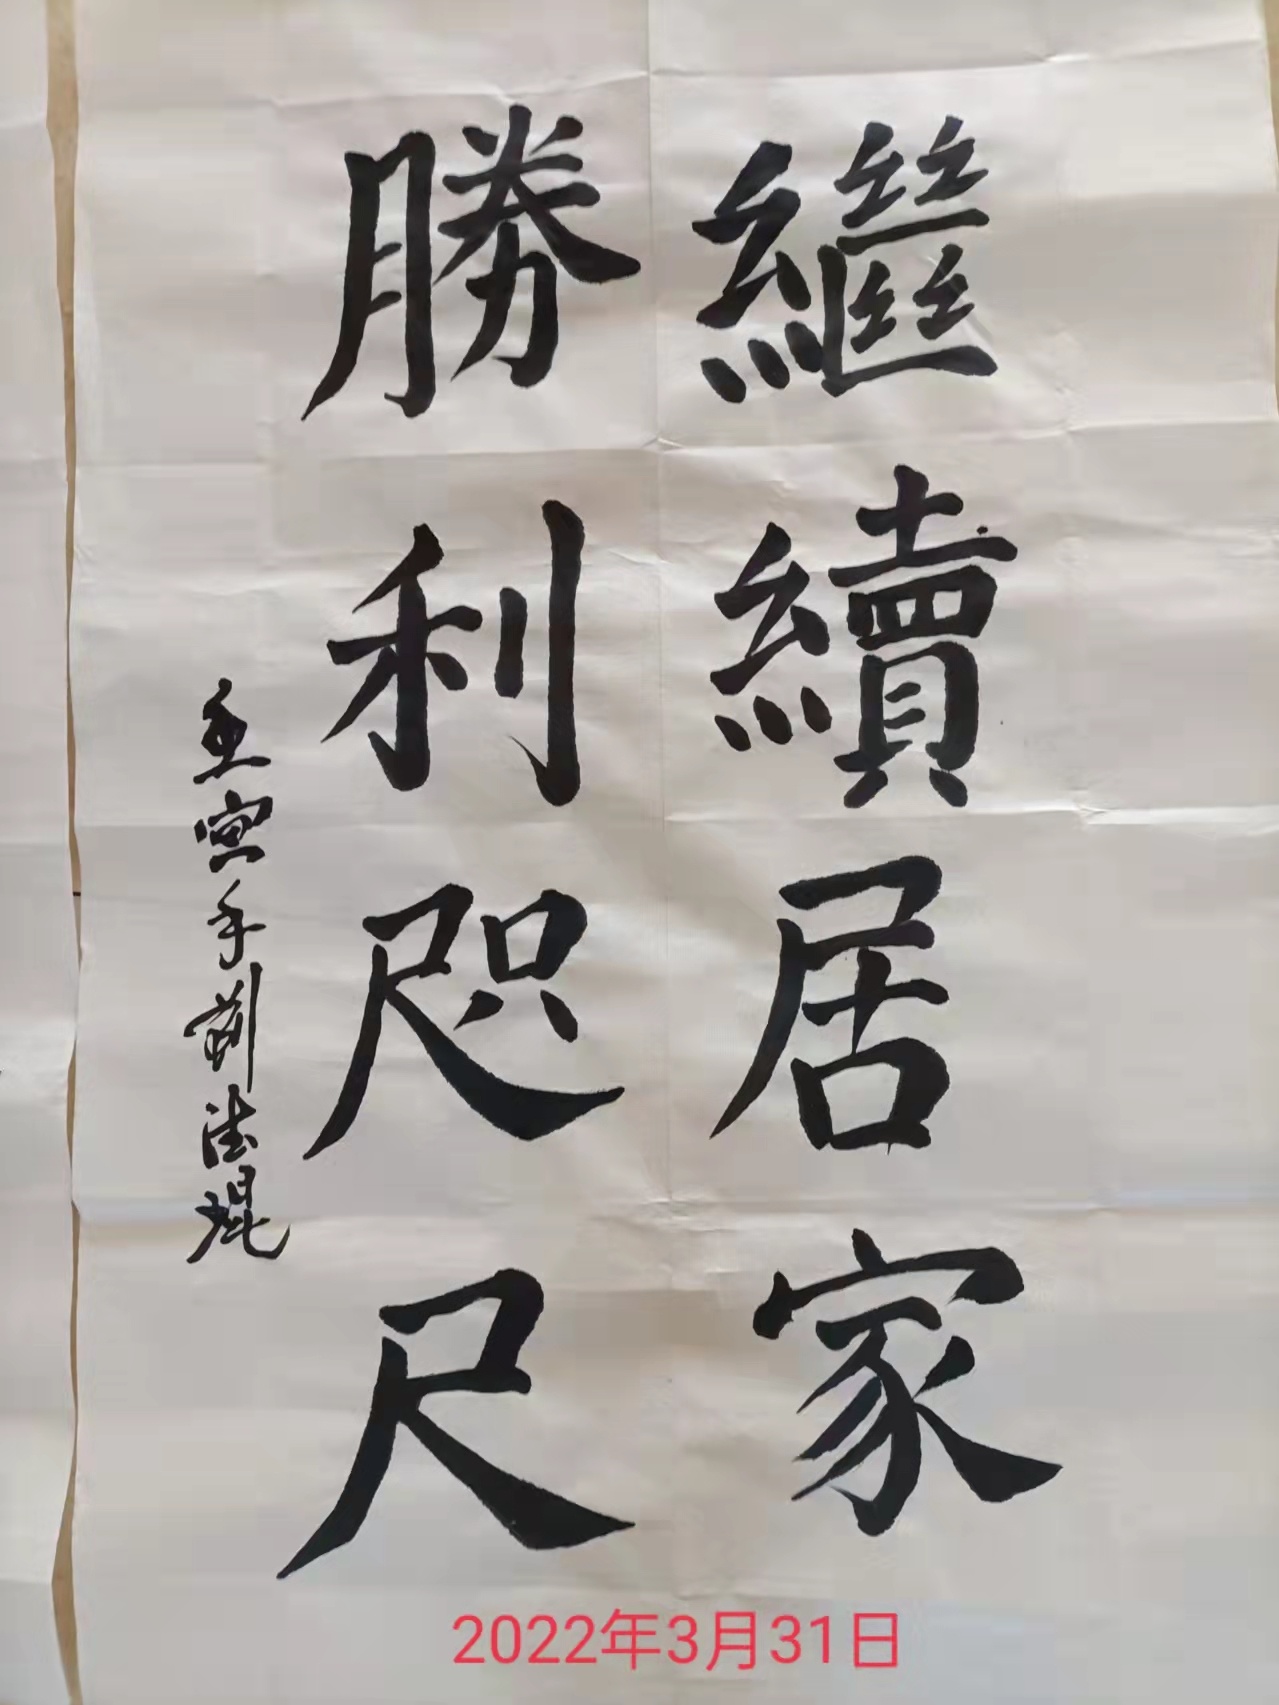 繼續居家
勝利咫尺
劉法堒
2022年3月31日